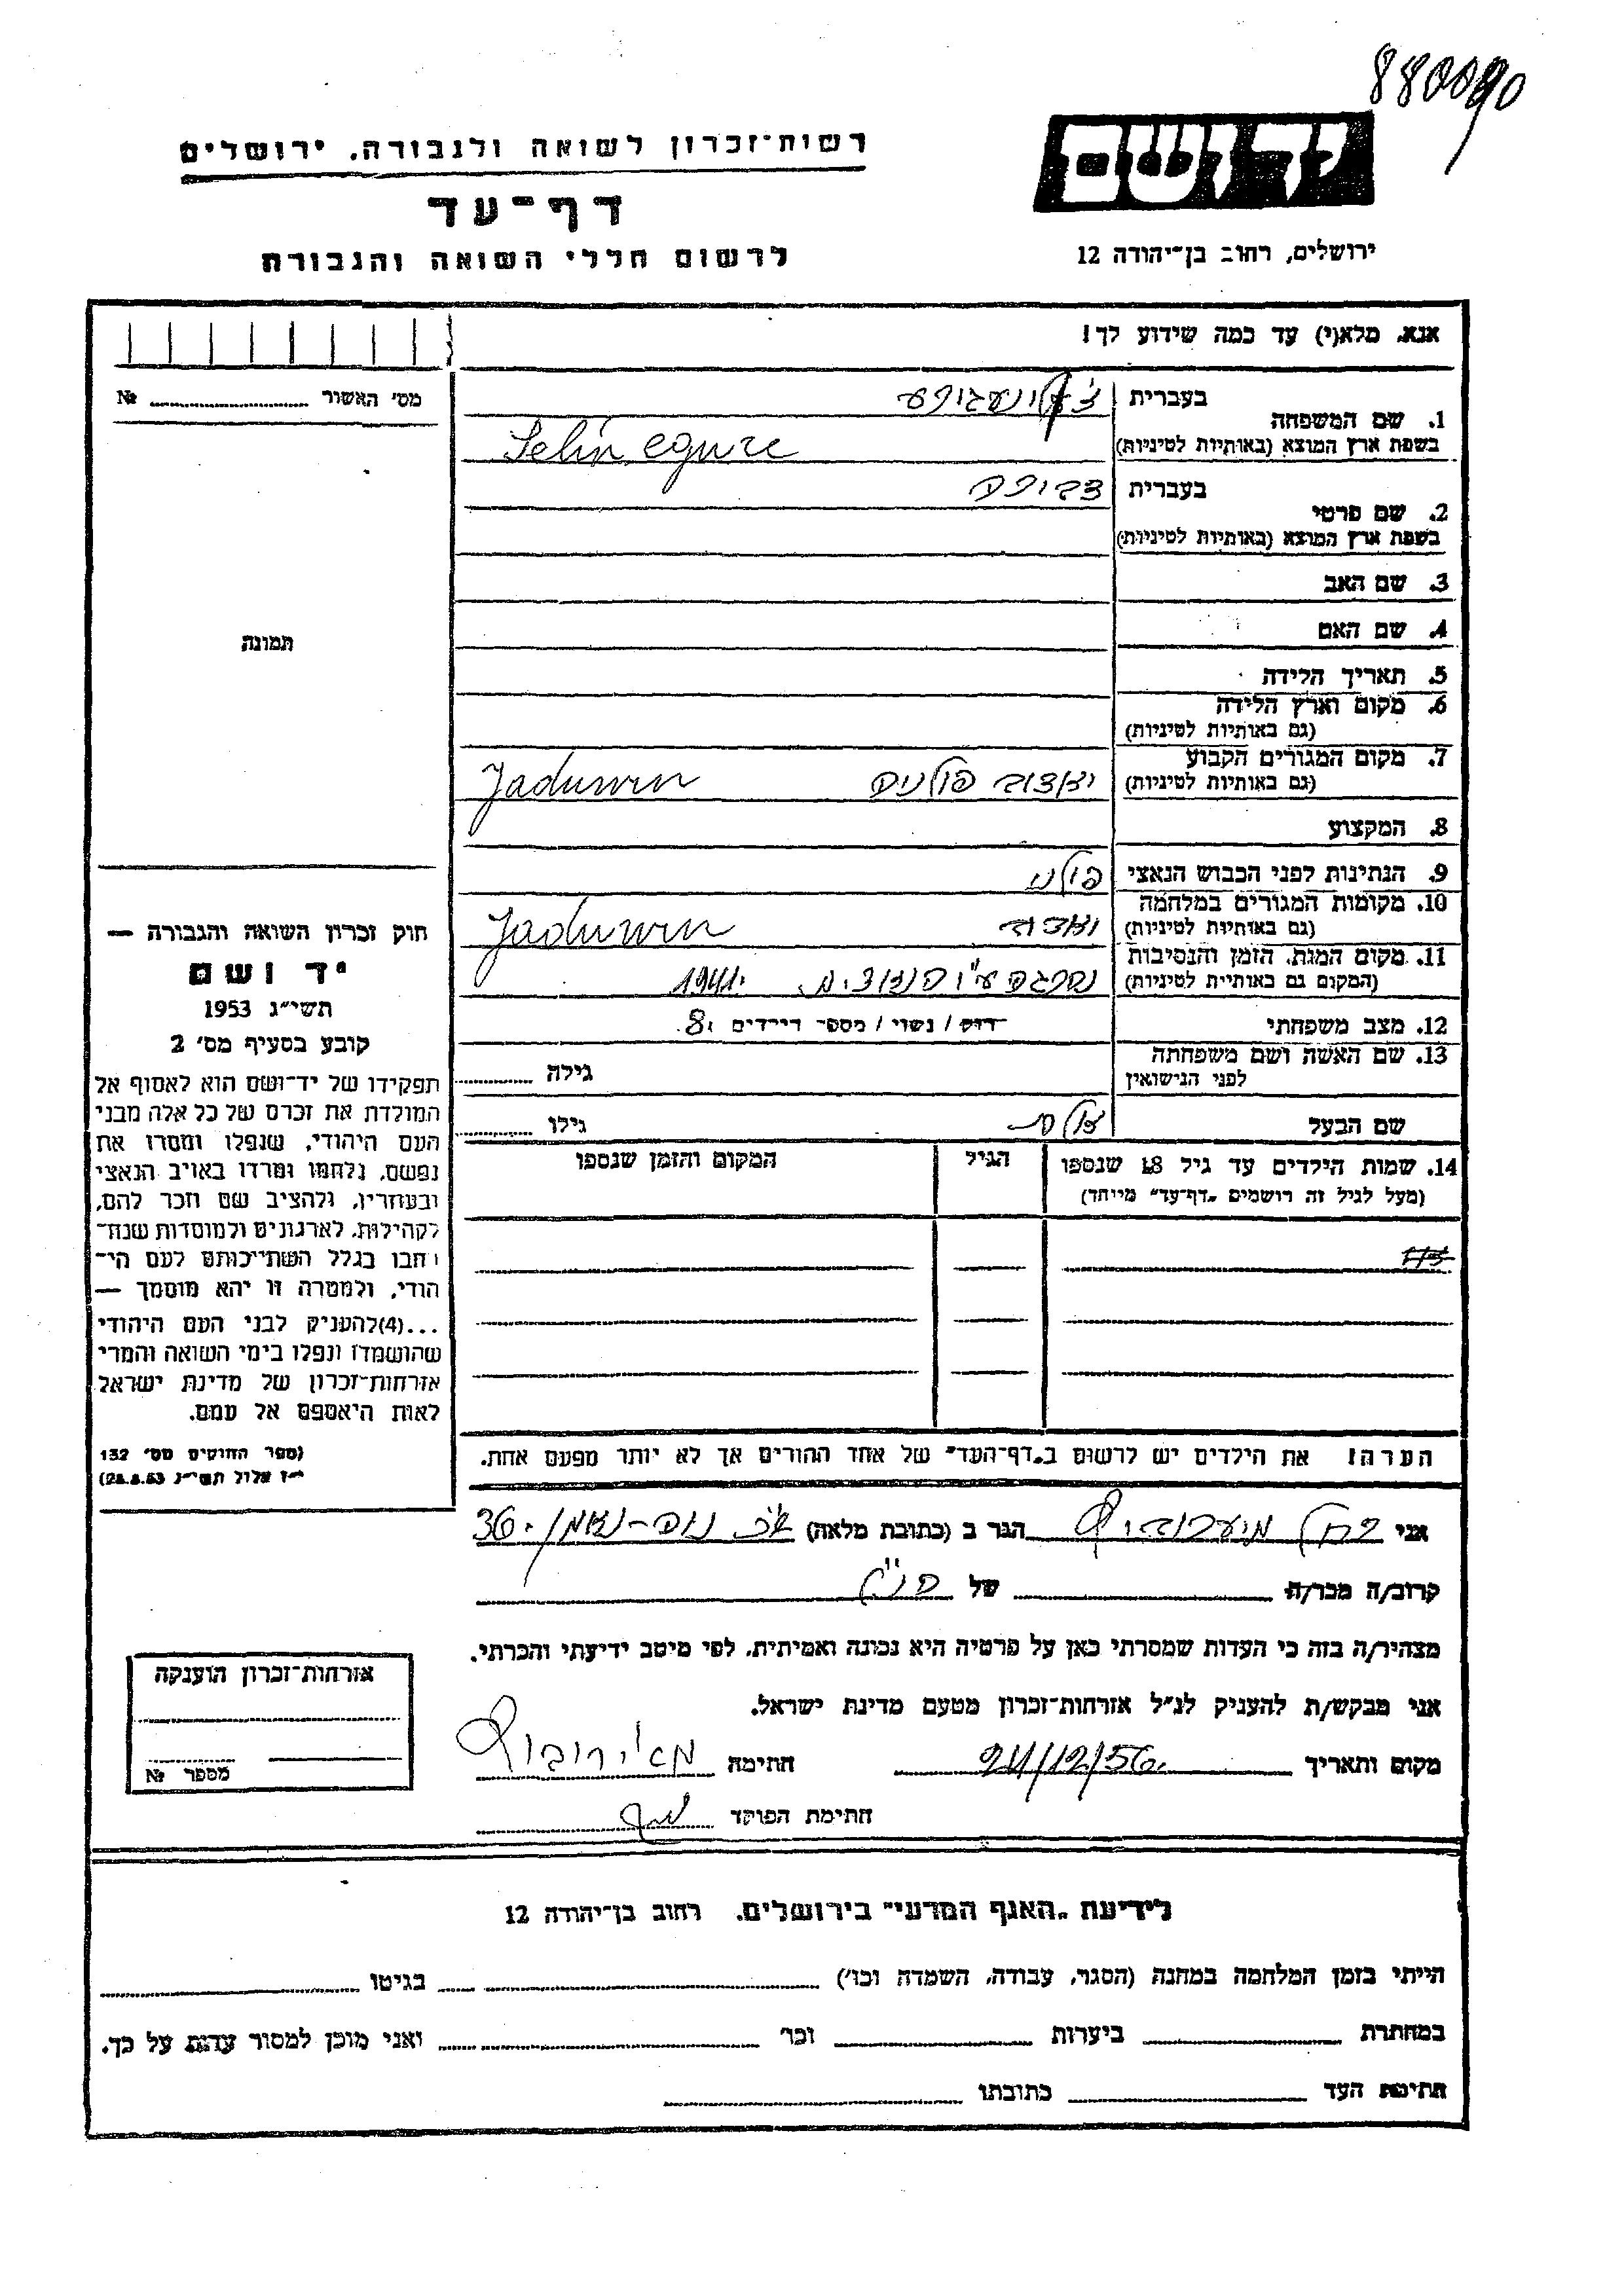 880090
רשות־זכרון לשואה ולגבורה. ירושלים
יד ושם
דף־עד
לרשום חללי השואה והגבורה
ירושלים, רחוב בן־יהודה 12
אנא. מלא(י) עד כמה שידוע לך!
מס׳ האשור № 
1. שם המשפחה
בעברית
בשפת ארץ המוצא (באותיות לטיניות)
2. שם פרטי
בעברית
בשפת ארץ המוצא (באותיות לטיניות)
3. שם האב
4. שם האם
5. תאריך הלידה
6. מקום וארץ הלידה
(גם באותיות לטיניות)
7. מקום המגורים הקבוע
(גם באותיות לטיניות) Jaduwin
8. המקצוע
9. הנתינות לפני הכבוש הנאצי
10. מקומות המגורים במלחמה
(גם באותיות לטיניות) Jaduwin
11. מקום המות, הזמן והנסיבות
(המקום גם באותיות לטיניות) נהרגה ע״י הנאצים. 1941.
12. מצב משפחתי רווק / נשוי / מספר הילדים 8.
13. שם האשה ושם משפחתה
לפני הנישואין
גילה
שם הבעל
גילו
14. שמות הילדים עד גיל 18 שנספו
(מעל לגיל זה רושמים „דף־עד״ מייחד)
הגיל
המקום והזמן שנספו
הערה! את הילדים יש לרשום ב„דף־העד״ של אחד ההורים אך לא יותר מפעם אחת.
תמונה
חוק זכרון השואה והגבורה —
יד ושם
תשי״ג 1953
קובע בסעיף מס׳ 2
תפקידו של יד־ושם הוא לאסוף אל
המולדת את זכרם של כל אלה מבני
העם היהודי, שנפלו ומסרו את
נפשם, נלחמו ומרדו באויב הנאצי
ובעוזריו, ולהציב שם וזכר להם,
לקהילות, לארגונים ולמוסדות שנח־
רבו בגלל השתייכותם לעם הי־
הודי, ולמטרה זו יהא מוסמך —
...(4)להעניק לבני העם היהודי
שהושמדו ונפלו בימי השואה והמרי
אזרחות־זכרון של מדינת ישראל
לאות היאספם אל עמם.
(ספר החוקים מס׳ 132
י״ז אלול תשי״ג 28.8.53)
אני
הגר ב (כתובת מלאה) 36.
קרוב/ה מכר/ה של
מצהיר/ה בזה כי העדות שמסרתי כאן על פרטיה היא נכונה ואמיתית, לפי מיטב ידיעתי והכרתי.
אני מבקש/ת להעניק לנ״ל אזרחות־זכרון מטעם מדינת ישראל.
מקום ותאריך 24/12/56. חתימה
חתימת הפוקד
אזרחות־זכרון הוענקה
מספר №
לידיעת „האגף המדעי״ בירושלים. רחוב בן־יהודה 12
הייתי בזמן המלחמה במחנה (הסגר, עבודה, השמדה וכו׳) בגיטו
במחתרת ביערות וכו׳ ואני מוכן למסור עדות על כך.
חתימת העד כתובתו